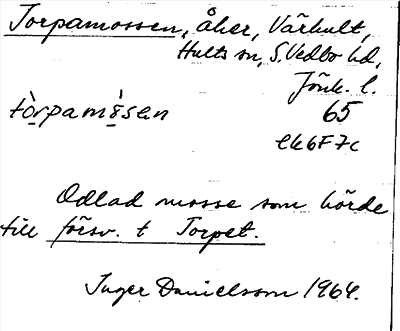 Torpamossen, åker, Värhult,
Hults sn, S. Vedbo hd,
Jönk. l.
tòrpamo̤sen 65
ek 6F7c
Odlad mosse som hörde
till försv. t Torpet.
Inger Danielsson 1964.